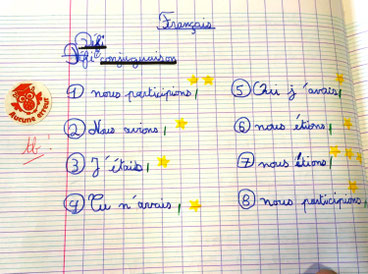 Français
Défi
Défi conjugaison
① nous participions,
② Nous avions,
③ J'étais,
④ Tu n'avais,
⑤ Qui j'avais,
⑥ nous étions,
⑦ nous étions,
⑧ nous participions,
Aucune erreur
tb!